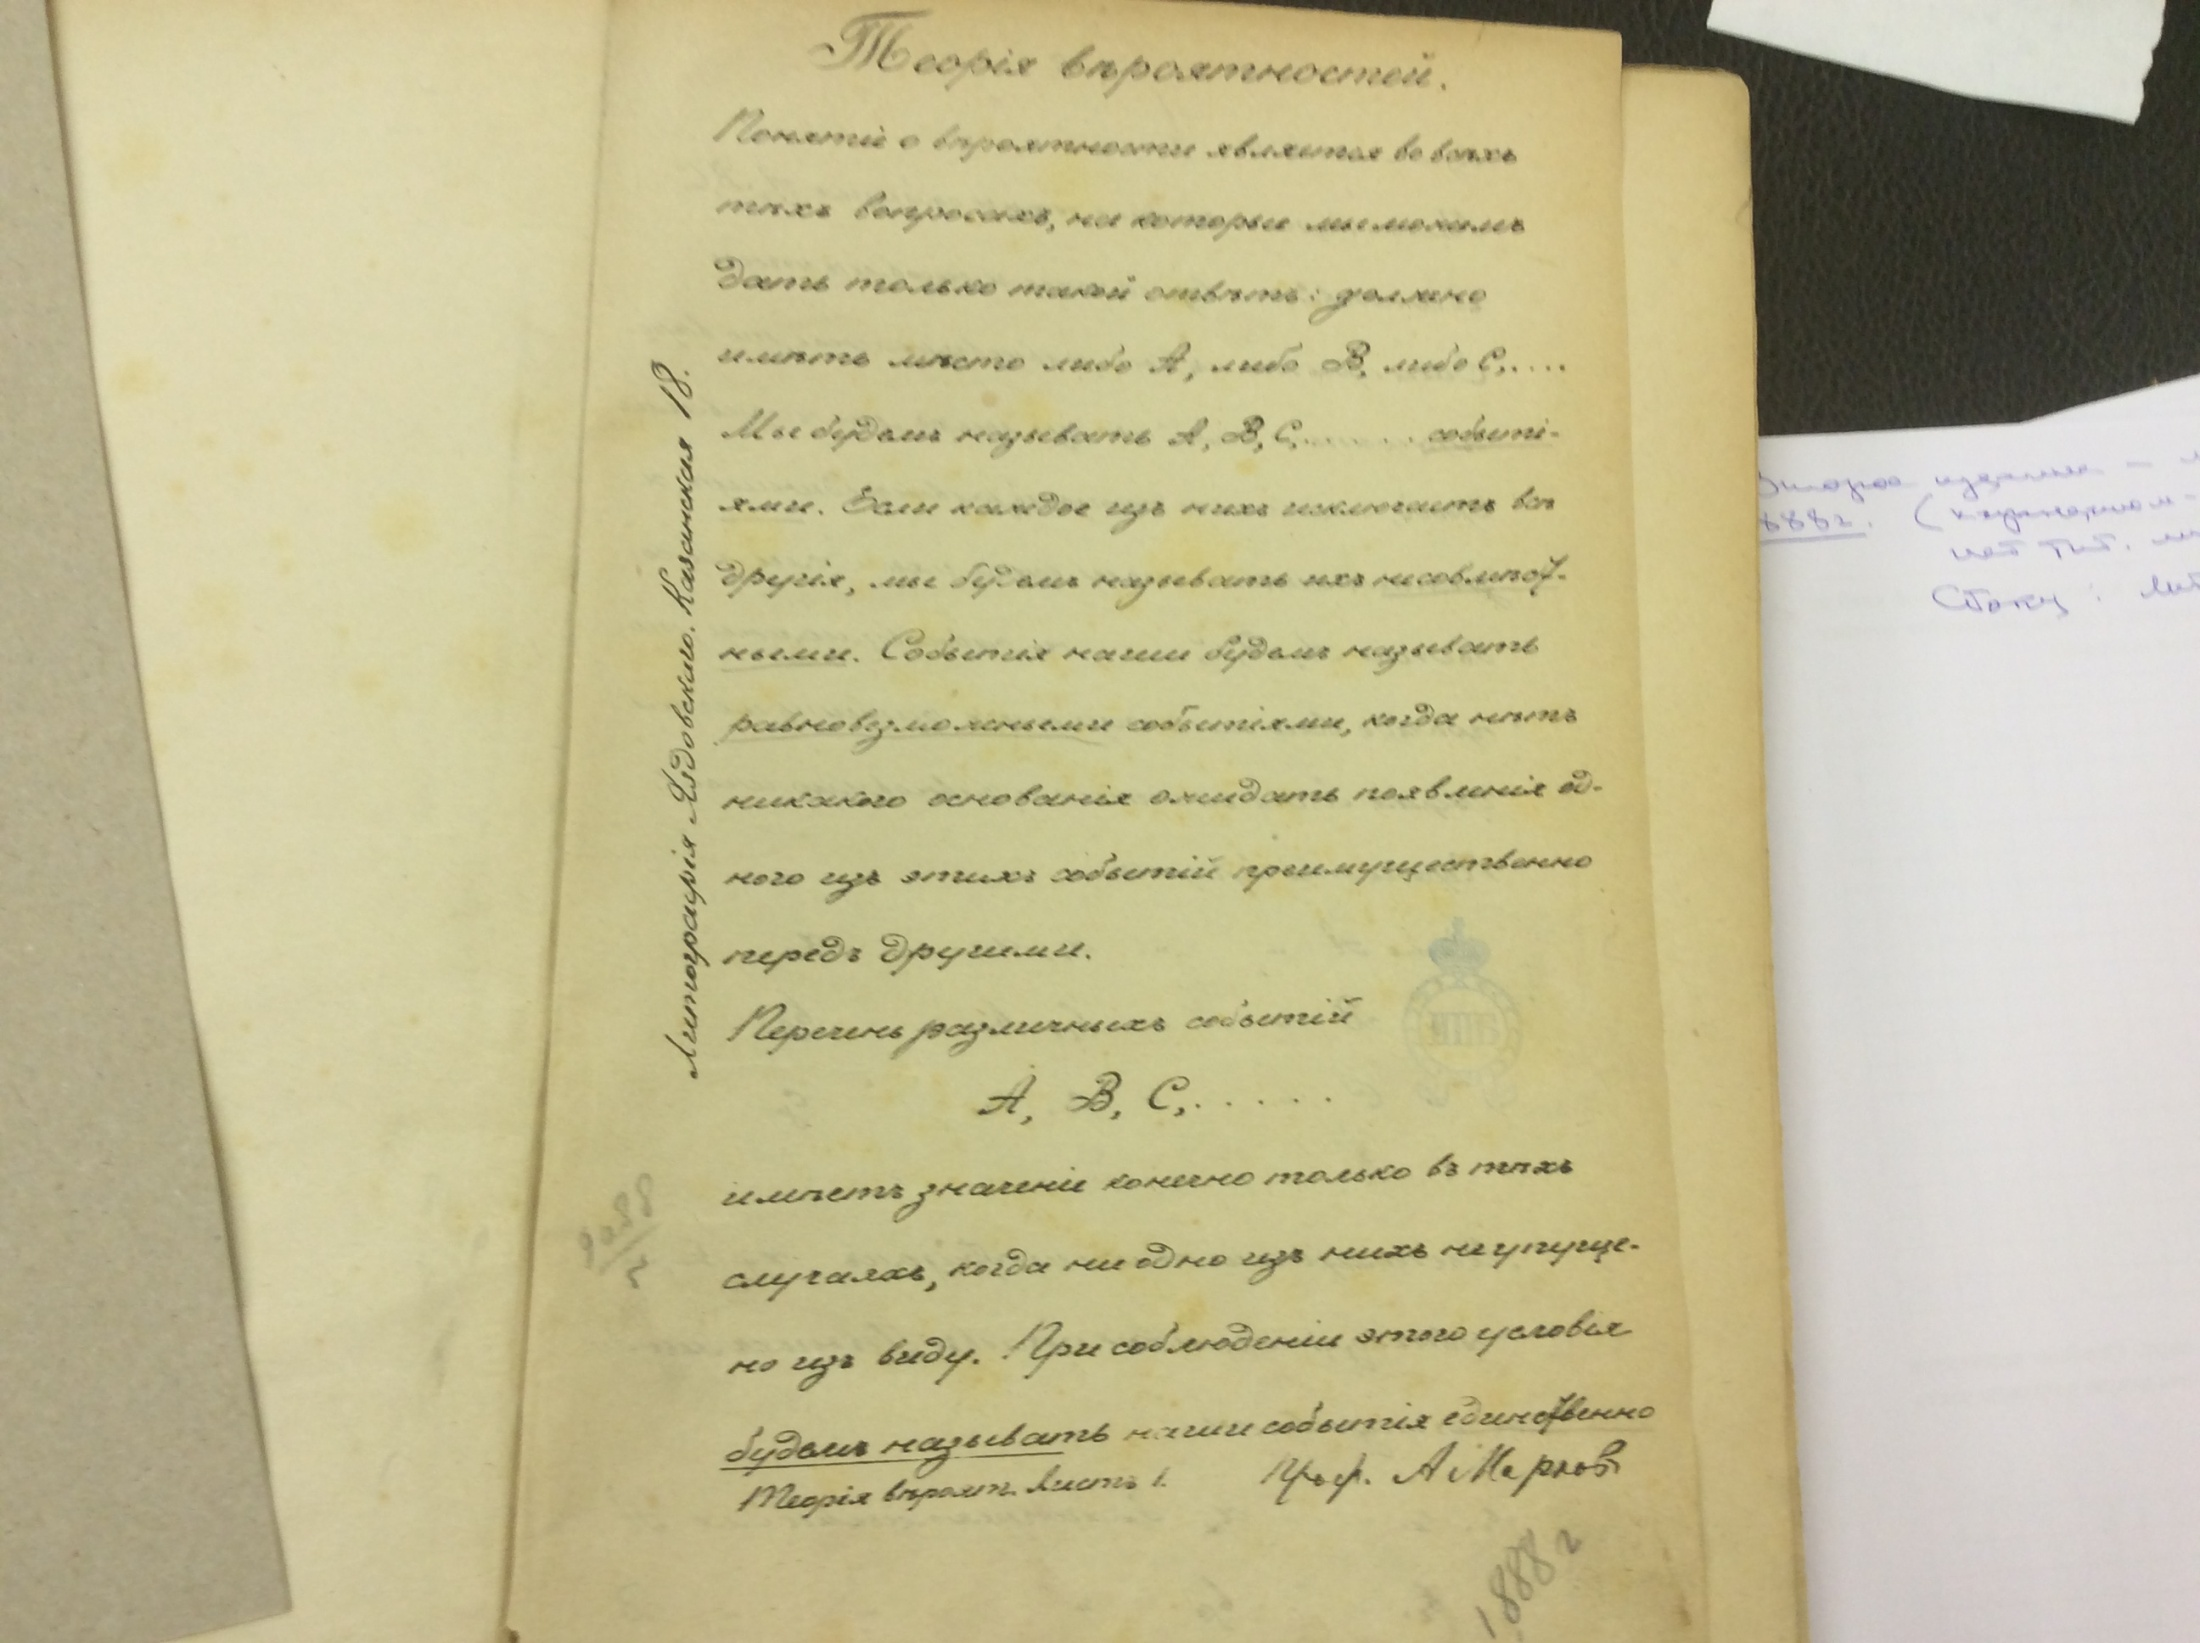 Теорія вѣроятностей.
Понятіе о вѣроятности является во всѣхъ
тѣхъ вопросахъ, на которые мы можемъ
дать только такой отвѣтъ: должно
имѣть мѣсто либо А, либо В, либо С,....
Мы будемъ называть А, В, С,...... событі-
ями. Если каждое изъ нихъ исключаетъ всѣ
другія, мы будемъ называть ихъ несовмѣст-
ными. Событія наши будемъ называть
равновозможными событіями, когда нѣтъ
никакого основанія ожидать появленія од-
ного изъ этихъ событій преимущественно
передъ другими.
Перечень различныхъ событій
А, В, С,.....
имѣетъ значеніе конечно только въ тѣхъ
случаяхъ, когда ни одно изъ нихъ не упуще-
но изъ виду. При соблюденіи этого условія
будемъ называть наши событія единственно
Теорія вѣроятн. Листъ 1. Проф. А Марков
1888 г
Литографія Лядовскаго. Казанская 18.
888г.